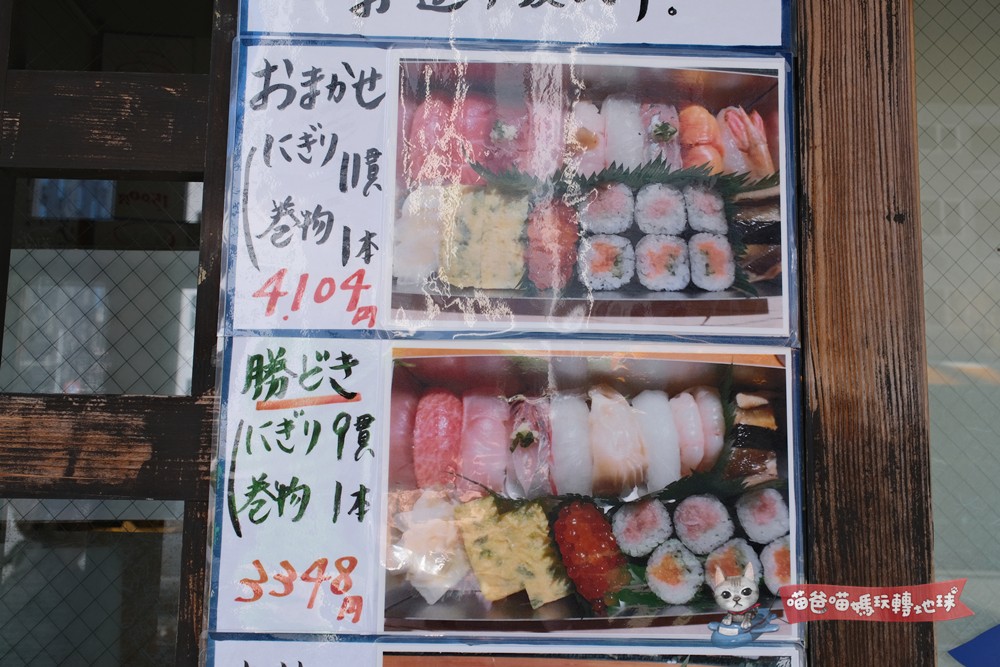 おまかせ
にぎり 11貫
巻物 1本
4,104円
勝どき
にぎり 9貫
巻物 1本
3348円
喵爸喵媽玩轉地球